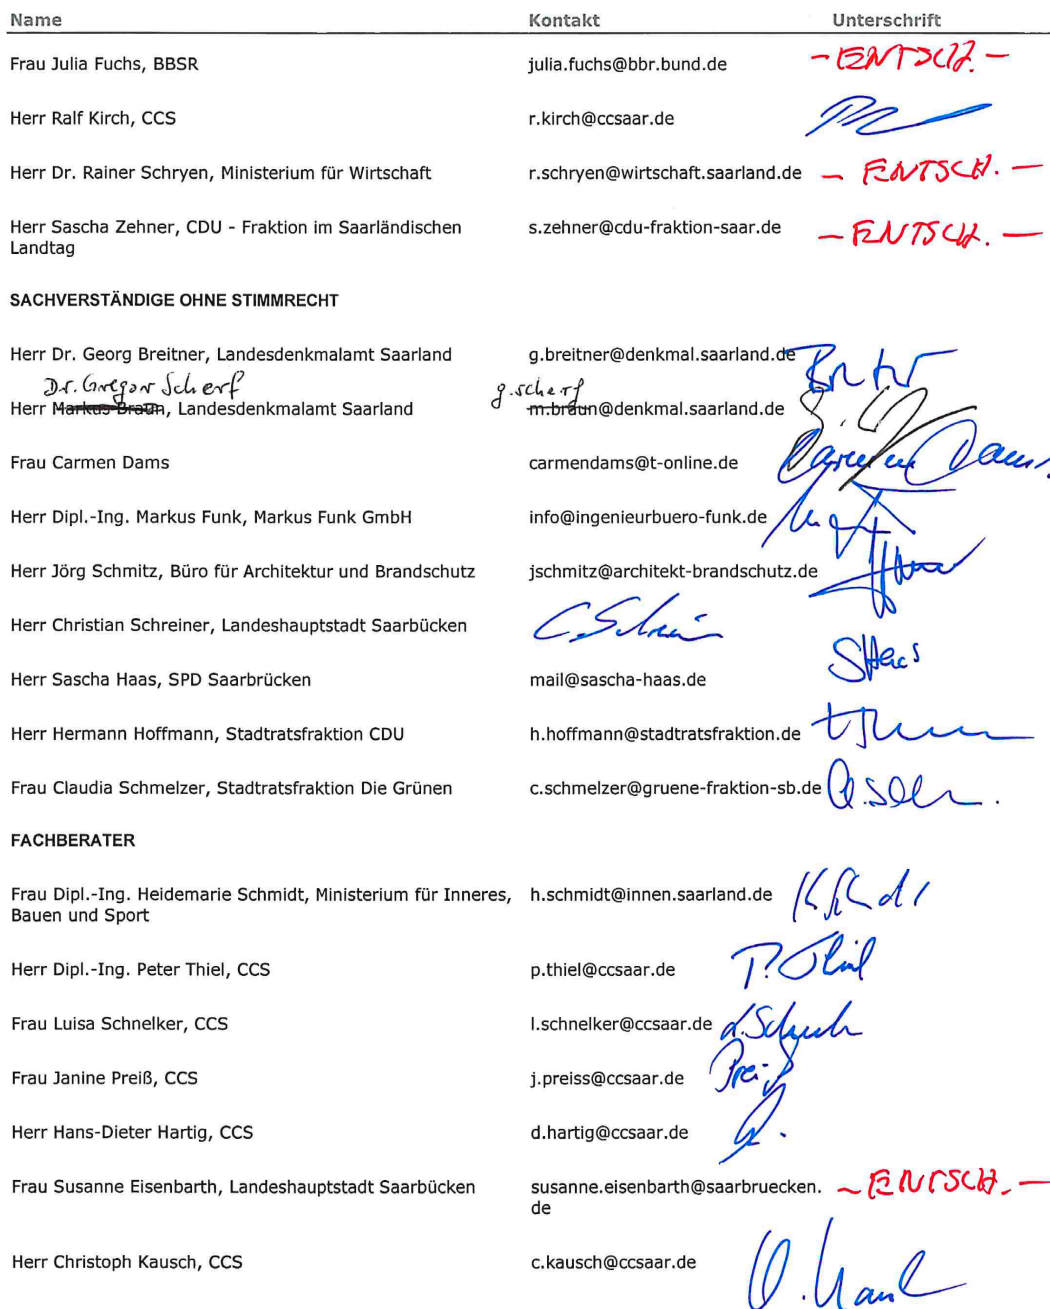 Name Kontakt Unterschrift
Frau Julia Fuchs, BBSR julia.fuchs@bbr.bund.de - ENTSCH. -
Herr Ralf Kirch, CCS r.kirch@ccsaar.de
Herr Dr. Rainer Schryen, Ministerium für Wirtschaft r.schryen@wirtschaft.saarland.de - ENTSCH. -
Herr Sascha Zehner, CDU - Fraktion im Saarländischen s.zehner@cdu-fraktion-saar.de - ENTSCH. -
Landtag
SACHVERSTÄNDIGE OHNE STIMMRECHT
Herr Dr. Georg Breitner, Landesdenkmalamt Saarland g.breitner@denkmal.saarland.de
Dr. Gregor Scherf g.scherf
Herr Markus Braun, Landesdenkmalamt Saarland m.braun@denkmal.saarland.de
Frau Carmen Dams carmendams@t-online.de Carmen Dams
Herr Dipl.-Ing. Markus Funk, Markus Funk GmbH info@ingenieurbuero-funk.de
Herr Jörg Schmitz, Büro für Architektur und Brandschutz jschmitz@architekt-brandschutz.de
Herr Christian Schreiner, Landeshauptstadt Saarbücken
Herr Sascha Haas, SPD Saarbrücken mail@sascha-haas.de SHaas
Herr Hermann Hoffmann, Stadtratsfraktion CDU h.hoffmann@stadtratsfraktion.de
Frau Claudia Schmelzer, Stadtratsfraktion Die Grünen c.schmelzer@gruene-fraktion-sb.de
FACHBERATER
Frau Dipl.-Ing. Heidemarie Schmidt, Ministerium für Inneres, h.schmidt@innen.saarland.de
Bauen und Sport
Herr Dipl.-Ing. Peter Thiel, CCS p.thiel@ccsaar.de P. Thiel
Frau Luisa Schnelker, CCS l.schnelker@ccsaar.de
Frau Janine Preiß, CCS j.preiss@ccsaar.de Preiß
Herr Hans-Dieter Hartig, CCS d.hartig@ccsaar.de
Frau Susanne Eisenbarth, Landeshauptstadt Saarbücken susanne.eisenbarth@saarbruecken. - ENTSCH. -
de
Herr Christoph Kausch, CCS c.kausch@ccsaar.de